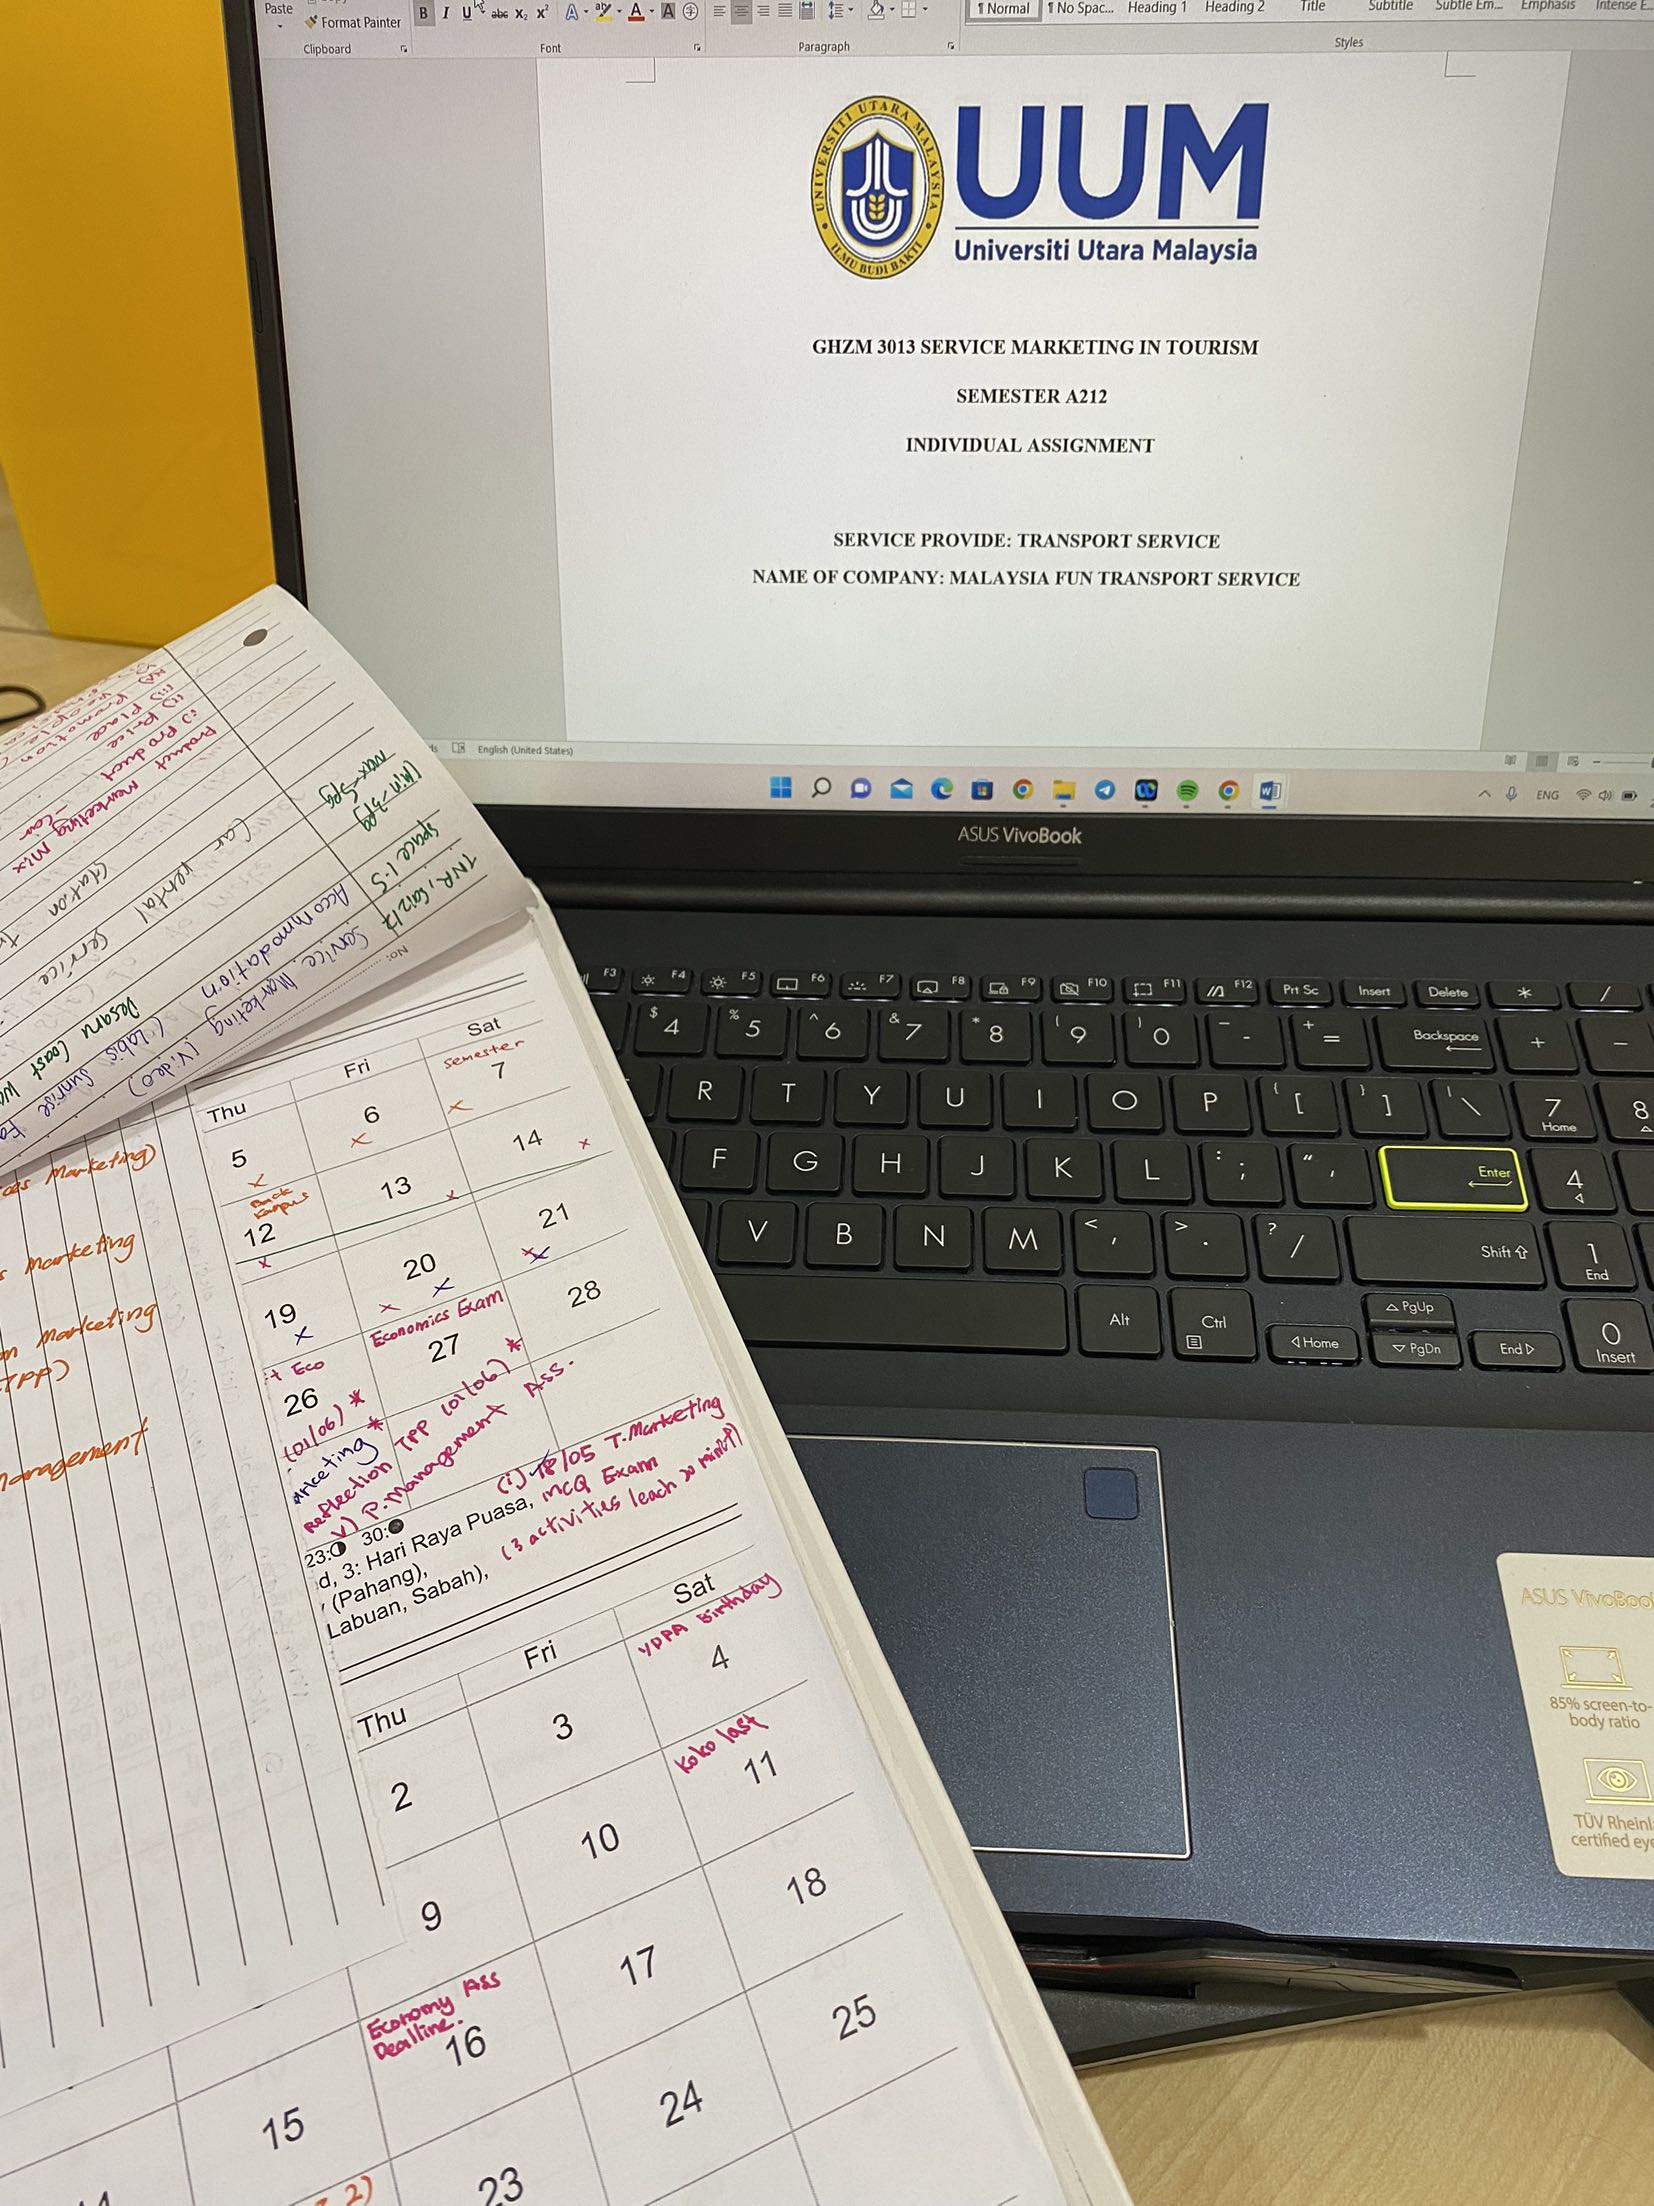 Paste
Format Painter
Clipboard
B I U abc X₂ X² A A A
Font
Paragraph
¶ Normal ¶ No Spac... Heading 1 Heading 2 Title Subtitle Subtle Em... Emphasis Intense E...
Styles
UNIVERSITI UTARA MALAYSIA
ILMU BUDI BAKTI
UUM
Universiti Utara Malaysia
GHZM 3013 SERVICE MARKETING IN TOURISM
SEMESTER A212
INDIVIDUAL ASSIGNMENT
SERVICE PROVIDE: TRANSPORT SERVICE
NAME OF COMPANY: MALAYSIA FUN TRANSPORT SERVICE
English (United States)
ENG
ASUS VivoBook
F3 F4 F5 F6 F7 F8 F9 F10 F11 F12 Prt Sc Insert Delete * /
$ 4 % 5 ^ 6 & 7 * 8 ( 9 ) 0 _ - + = Backspace + -
R T Y U I O P { [ } ] \ 7 Home 8
F G H J K L : ; " ' Enter 4
V B N M < , > . ? / Shift 1 End
Alt Ctrl Home PgUp PgDn End 0 Insert
ASUS VivoBoo
85% screen-to-
body ratio
TÜV Rheinl
certified eye
No:
Service Marketing (Video)
Accommodation
(Labis Sunrise
Desaru Coast
TNR, Saiz 12
space 1.5
(Min-3pg
max-5pg
Car rental service
Product Marketing Mix
i) Product - car
ii) Price
iii) Place
Promotion
People
Marketing)
s Marketing
Marketing
TPP)
Management
Thu Fri Sat
semester
5 6 7
Back
Kampus
12 13 14
19 20 21
Eco
Economics Exam
26 27 28
(01/06) *
Reflection TPP (01/06) *
v) P. Management Ass.
(i) 18/05 T. Marketing
MCQ Exam
(3 activities
23: 30:
d, 3: Hari Raya Puasa,
(Pahang),
Labuan, Sabah),
Thu Fri Sat
YDPA Birthday
2 3 4
Koko last
9 10 11
Economy Ass
Dealline.
15 16 17 18
23 24 25
2)